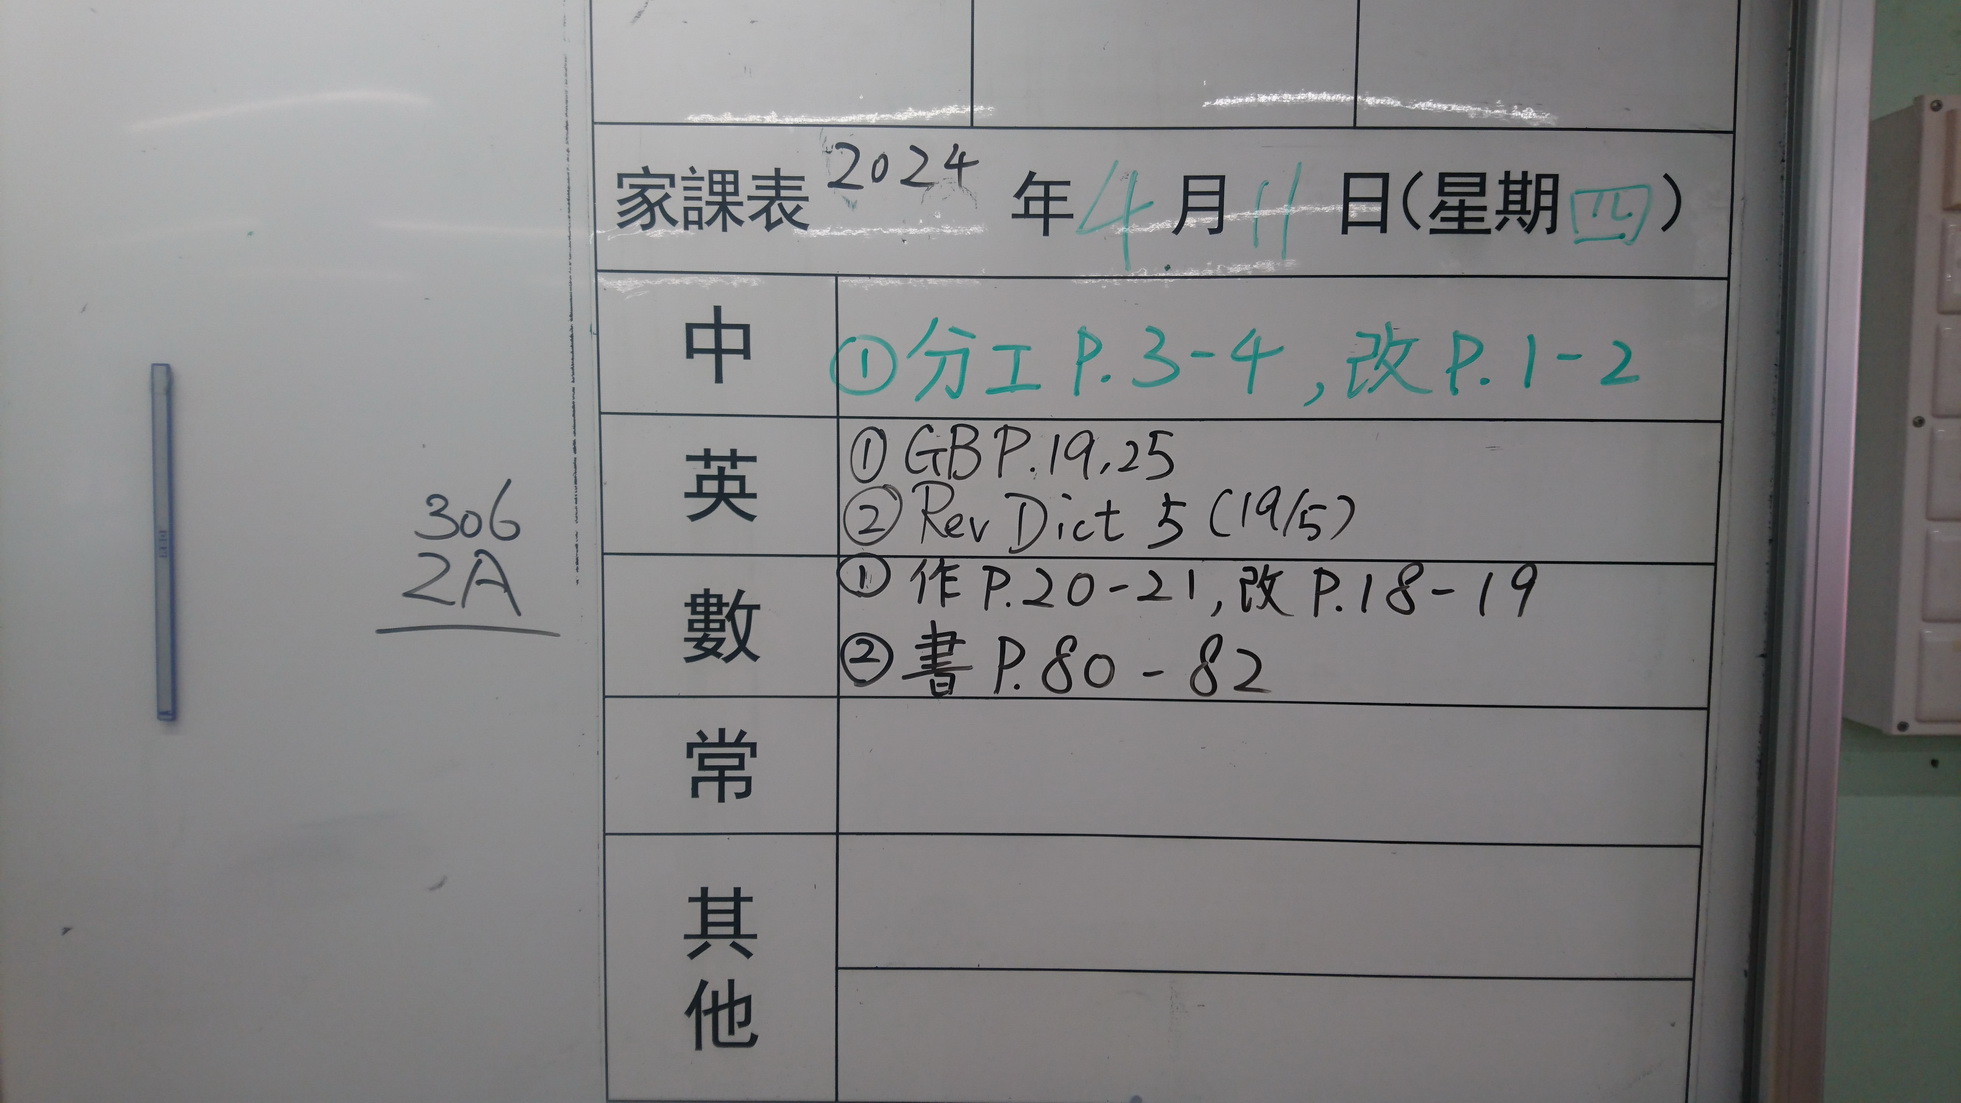 家課表 2024 年 4 月 11 日(星期四)
中
①分工 P.3-4,改P.1-2
英
①GB P.19,25
②Rev Dict 5 (19/5)
數
①作P.20-21,改P.18-19
②書P.80-82
常
其他
306
2A